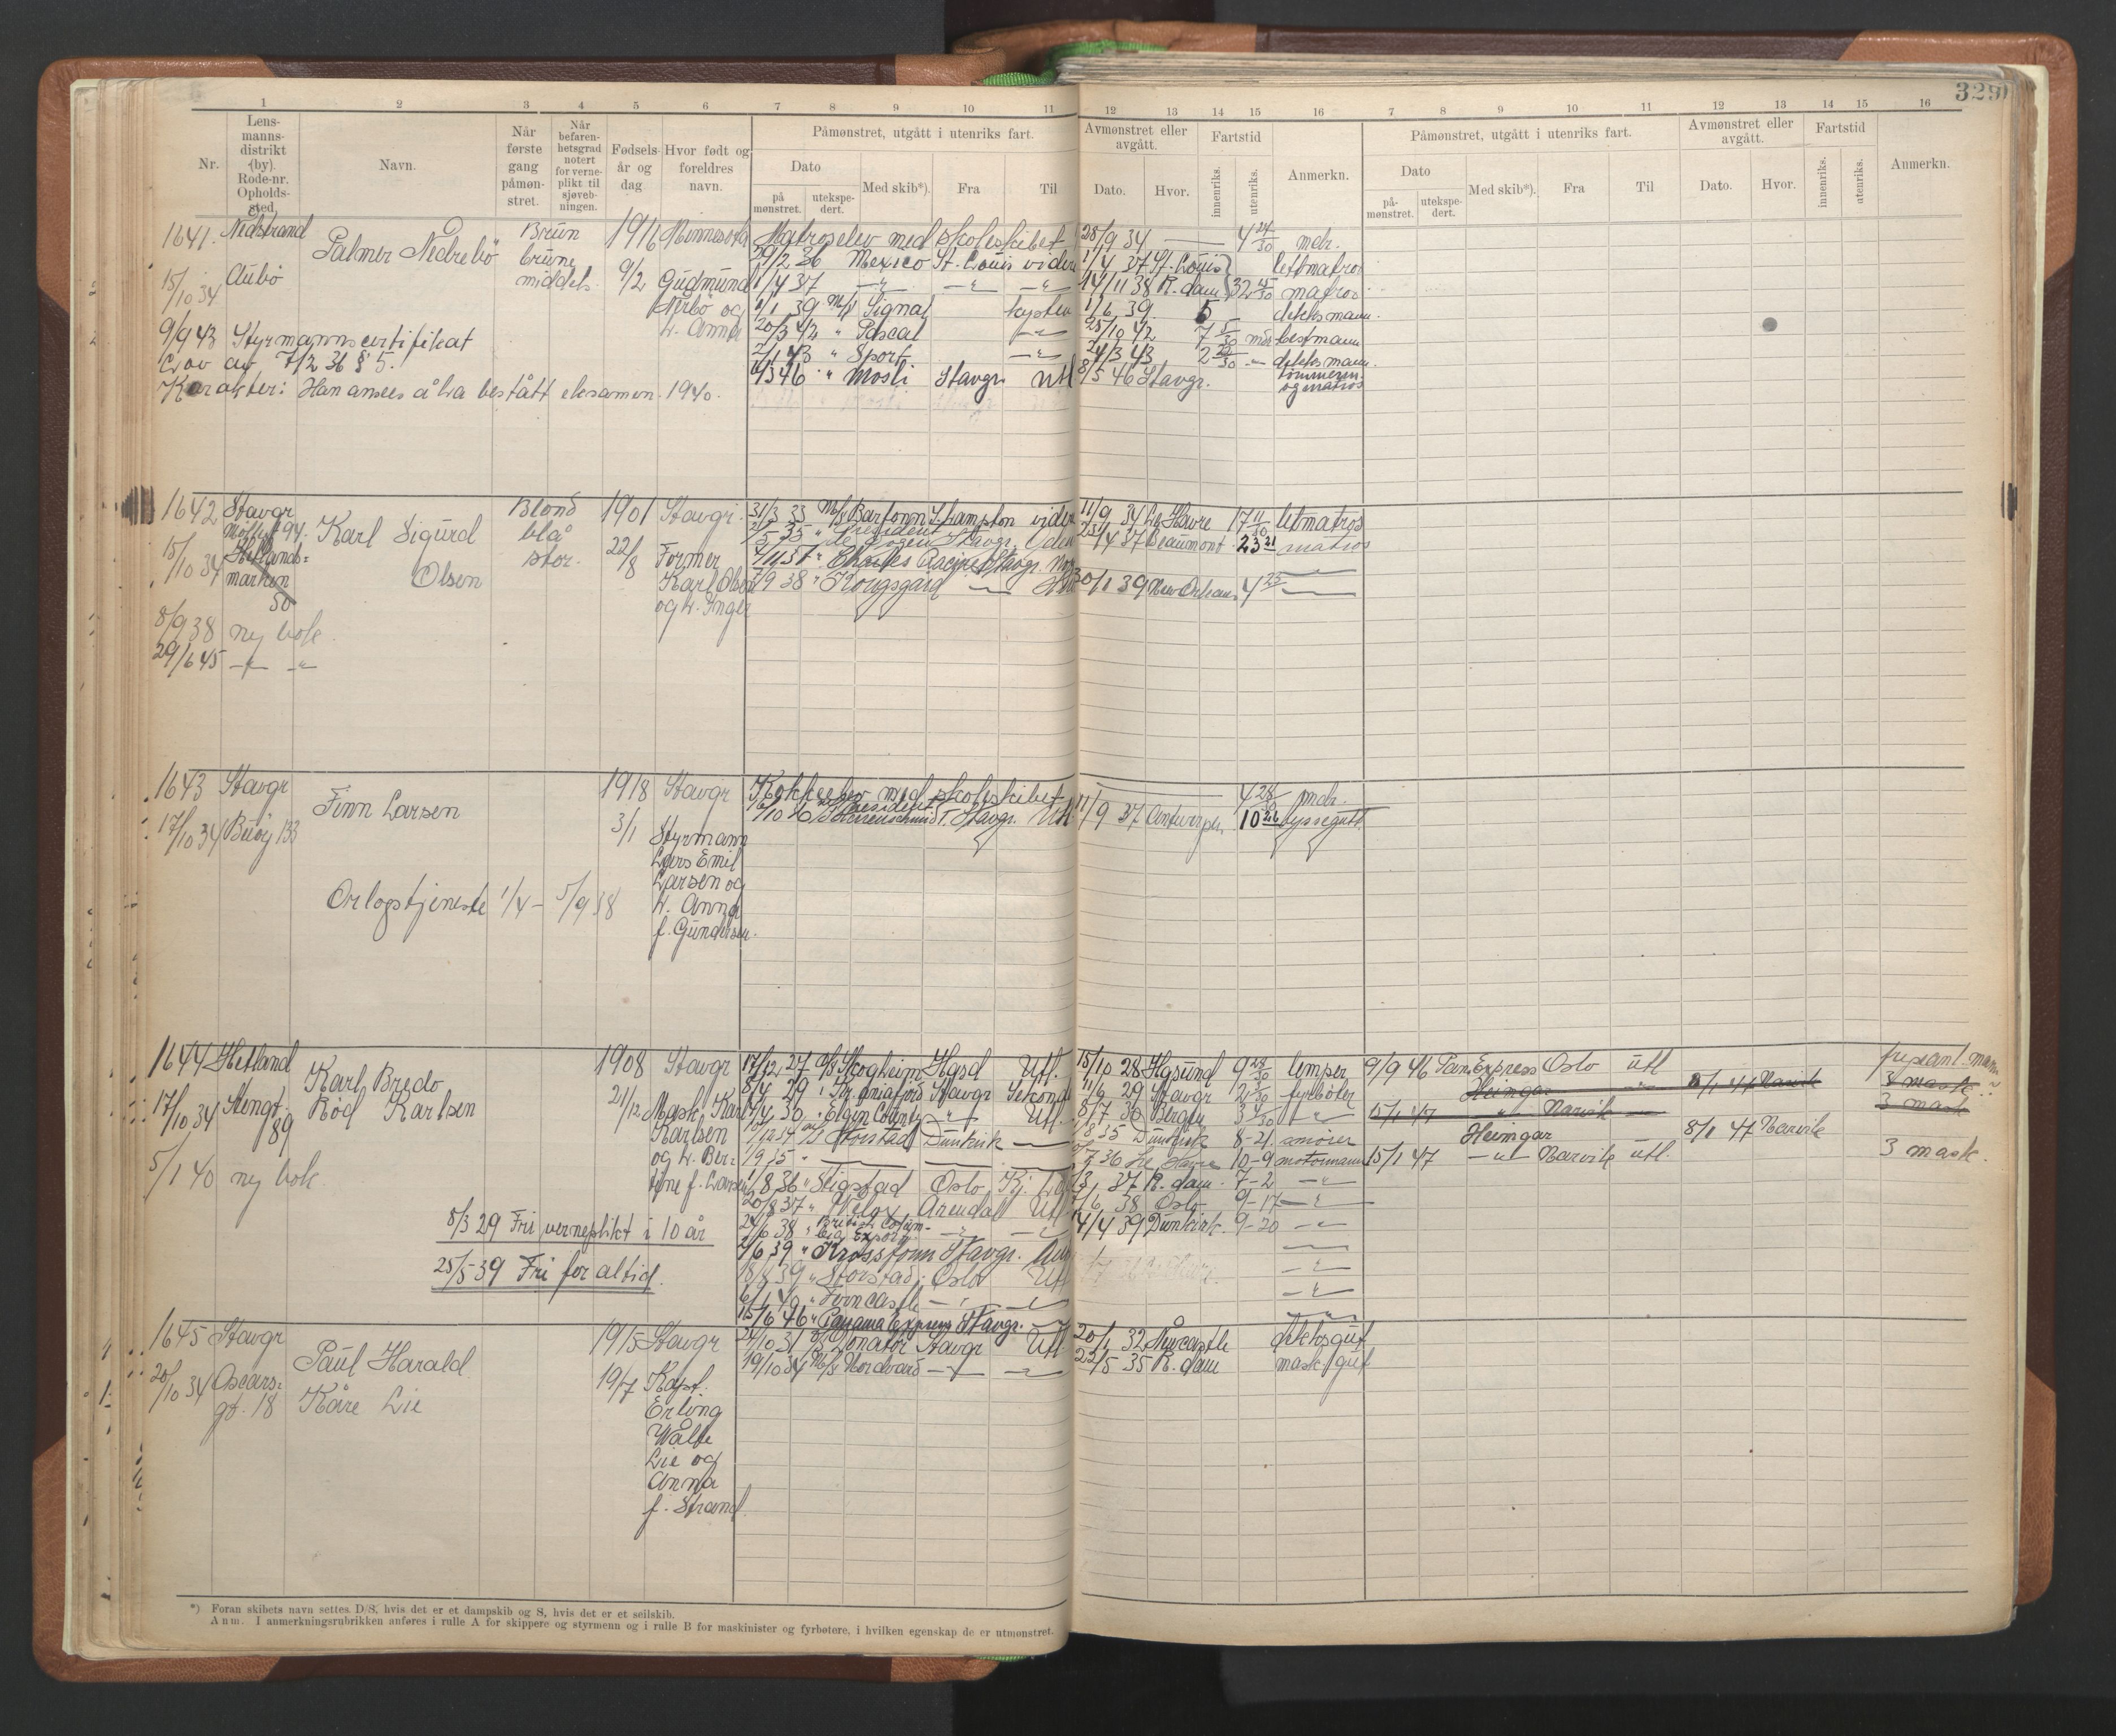 329
1 2 3 4 5 6 7 8 9 10 11 12 13 14 15 16 7 8 9 10 11 12 13 14 15 16
Nr.
Lens-
manns-
distrikt
(by).
Rode-nr.
Opholds-
sted.
Navn.
Når
første
gang
påmøn-
stret.
Når
befaren-
hetsgrad
notert
for verne-
plikt til
sjøveb-
ningen.
Fødsels-
år og
dag
Hvor født og
foreldres
navn.
Påmønstret, utgått i utenriks fart.
Dato
på
mønstret.
utekspe-
dert.
Med skib*).
Fra
Til
Avmønstret eller
avgått.
Dato.
Hvor.
Fartstid
innenriks.
utenriks.
Anmerkn.
Påmønstret, utgått i utenriks fart.
Dato
på-
mønstret.
utekspe-
dert.
Med skib*).
Fra
Til
Avmønstret eller
avgått.
Dato.
Hvor.
Fartstid
innenriks.
utenriks.
Anmerkn.
1641. Nedstrand
15/10 34 Aubø
Palmer Nedrebö
Brun
brune
middels
1916
9/2
Minnesota
Gudmund
Nerbö og
h. Anna
9/9 43 Styrmannscertifikat
Lov av 7/2 36 § 5.
Karakter: Han ansees å ha bestått eksamen 1940.
Matroselev med skoleskibet 28/9 34 4 24/30 mdr.
29/2 36 Mexico St. Louis videre 1/4 37 St. Louis lettmatros
1/4 37 14/11 38 R.dam matros
1/1 39 M/S Signal kysten 1/6 39. 5 dekksmann.
20/3 42 " Pascal 25/10 42 7 5/30 mdr bestmann
2/1 43 " Sport 24/3 43 2 22/30 dekksmann.
4/3 46 " Mosli Stavgr. Utl 8/5 46 Stavgr. tømmerm.
og matros
1642 Stavgr
15/10 34
marken
50
Karl Sigurd
Olsen
Blond
blå
stor.
1901
22/8
Stavgr.
Former
Karl Olsen
og h. Inger
8/9 38 ny bok.
29/6 45 -"- -"-
31/3 33 videre 11/9 34 Le Havre 17 11/30 letmatros
Stavgr. 23/4 37 Beaumont 23 21 matros
" Charles Racine Stavgr.
9 38 " Kongsgård 30/1 39 New Orleans 4 23
1643 Stavgr
17/10 34 Buöy 133
Finn Larsen
1918
3/1
Stavgr
Styrmann
Lars Emil
Larsen og
h. Anna
f. Gundersen.
Orlogstjeneste 1/4 - 5/9 38
Kokkelev med skoleskibet 4 28/30 mdr.
16/10 36 Stavgr. Utl 11/9 37 Antwerpen 10 26 byssegutt
1644 Hetland
17/10 34 Stengt.
89
Karl Bredo
Röd Karlsen
1908
21/12
Stavgr
Mask. Karl
Karlsen
og h. Ber-
tine f. Larsen
5/1 40 ny bok.
8/3 29 Fri verneplikt i 10 år
25/5 39 Fri for altid.
17/12 27 D/S Skogheim Hgsd Utl. 15/10 28 Hgsund 9 28/30 lemper
8/4 29 Stavgr 11/9 29 Stavgr fyrböter
30 " Elgin County -"- Utl. 8/7 30 Bergen 3 4/30 -"-
Storstad Dunkirk 35 Dunkirk 8-21. smører
19 35 36 Le Havre 10-9 motormann
1/8 36 " Stigstad Oslo 37 R.dam. 7-2 -"-
20/8 37 " Velox Arendal Utl 38 Oslo 9-17 -"-
24/6 38 " British Colum-
bia Express -"- 4/4 39 Dunkirk 9-20 -"-
6 39 " Krossfonn Stavgr.
18/8 39 " Storstad Oslo Utl
6/1 40 " Ferncastle
15/6 46 " Panama Express Stavgr.
9/9 46 Pan. Express Oslo utl reparat. mann
Heimgar 8/1 47 Narvik 3 mask
15/1 47 " Narvik 3 mask
Heimgar 8/1 47 Narvik
15/1 47 -"- Narvik utl. 3 mask.
1645 Stavgr
20/10 34 Oscars-
gt. 18
Paul Harald
Kåre Lie
1915
19/7
Stavgr
Kapt.
Erling
Walle
Lie og
Anna
f. Strand.
21/10 31 D/S Donator Stavgr Utl. 20/1 32 Newcastle dekksgut
19/10 34 M/S Nordvard 22/5 35 R.dam mask.gut
*) Foran skibets navn settes D/S, hvis det er et dampskib og S, hvis det er et seilskib.
Anm. I anmerkningsrubrikken anføres i rulle A for skippere og styrmenn og i rulle B for maskinister og fyrbøtere, i hvilken egenskap de er utmønstret.